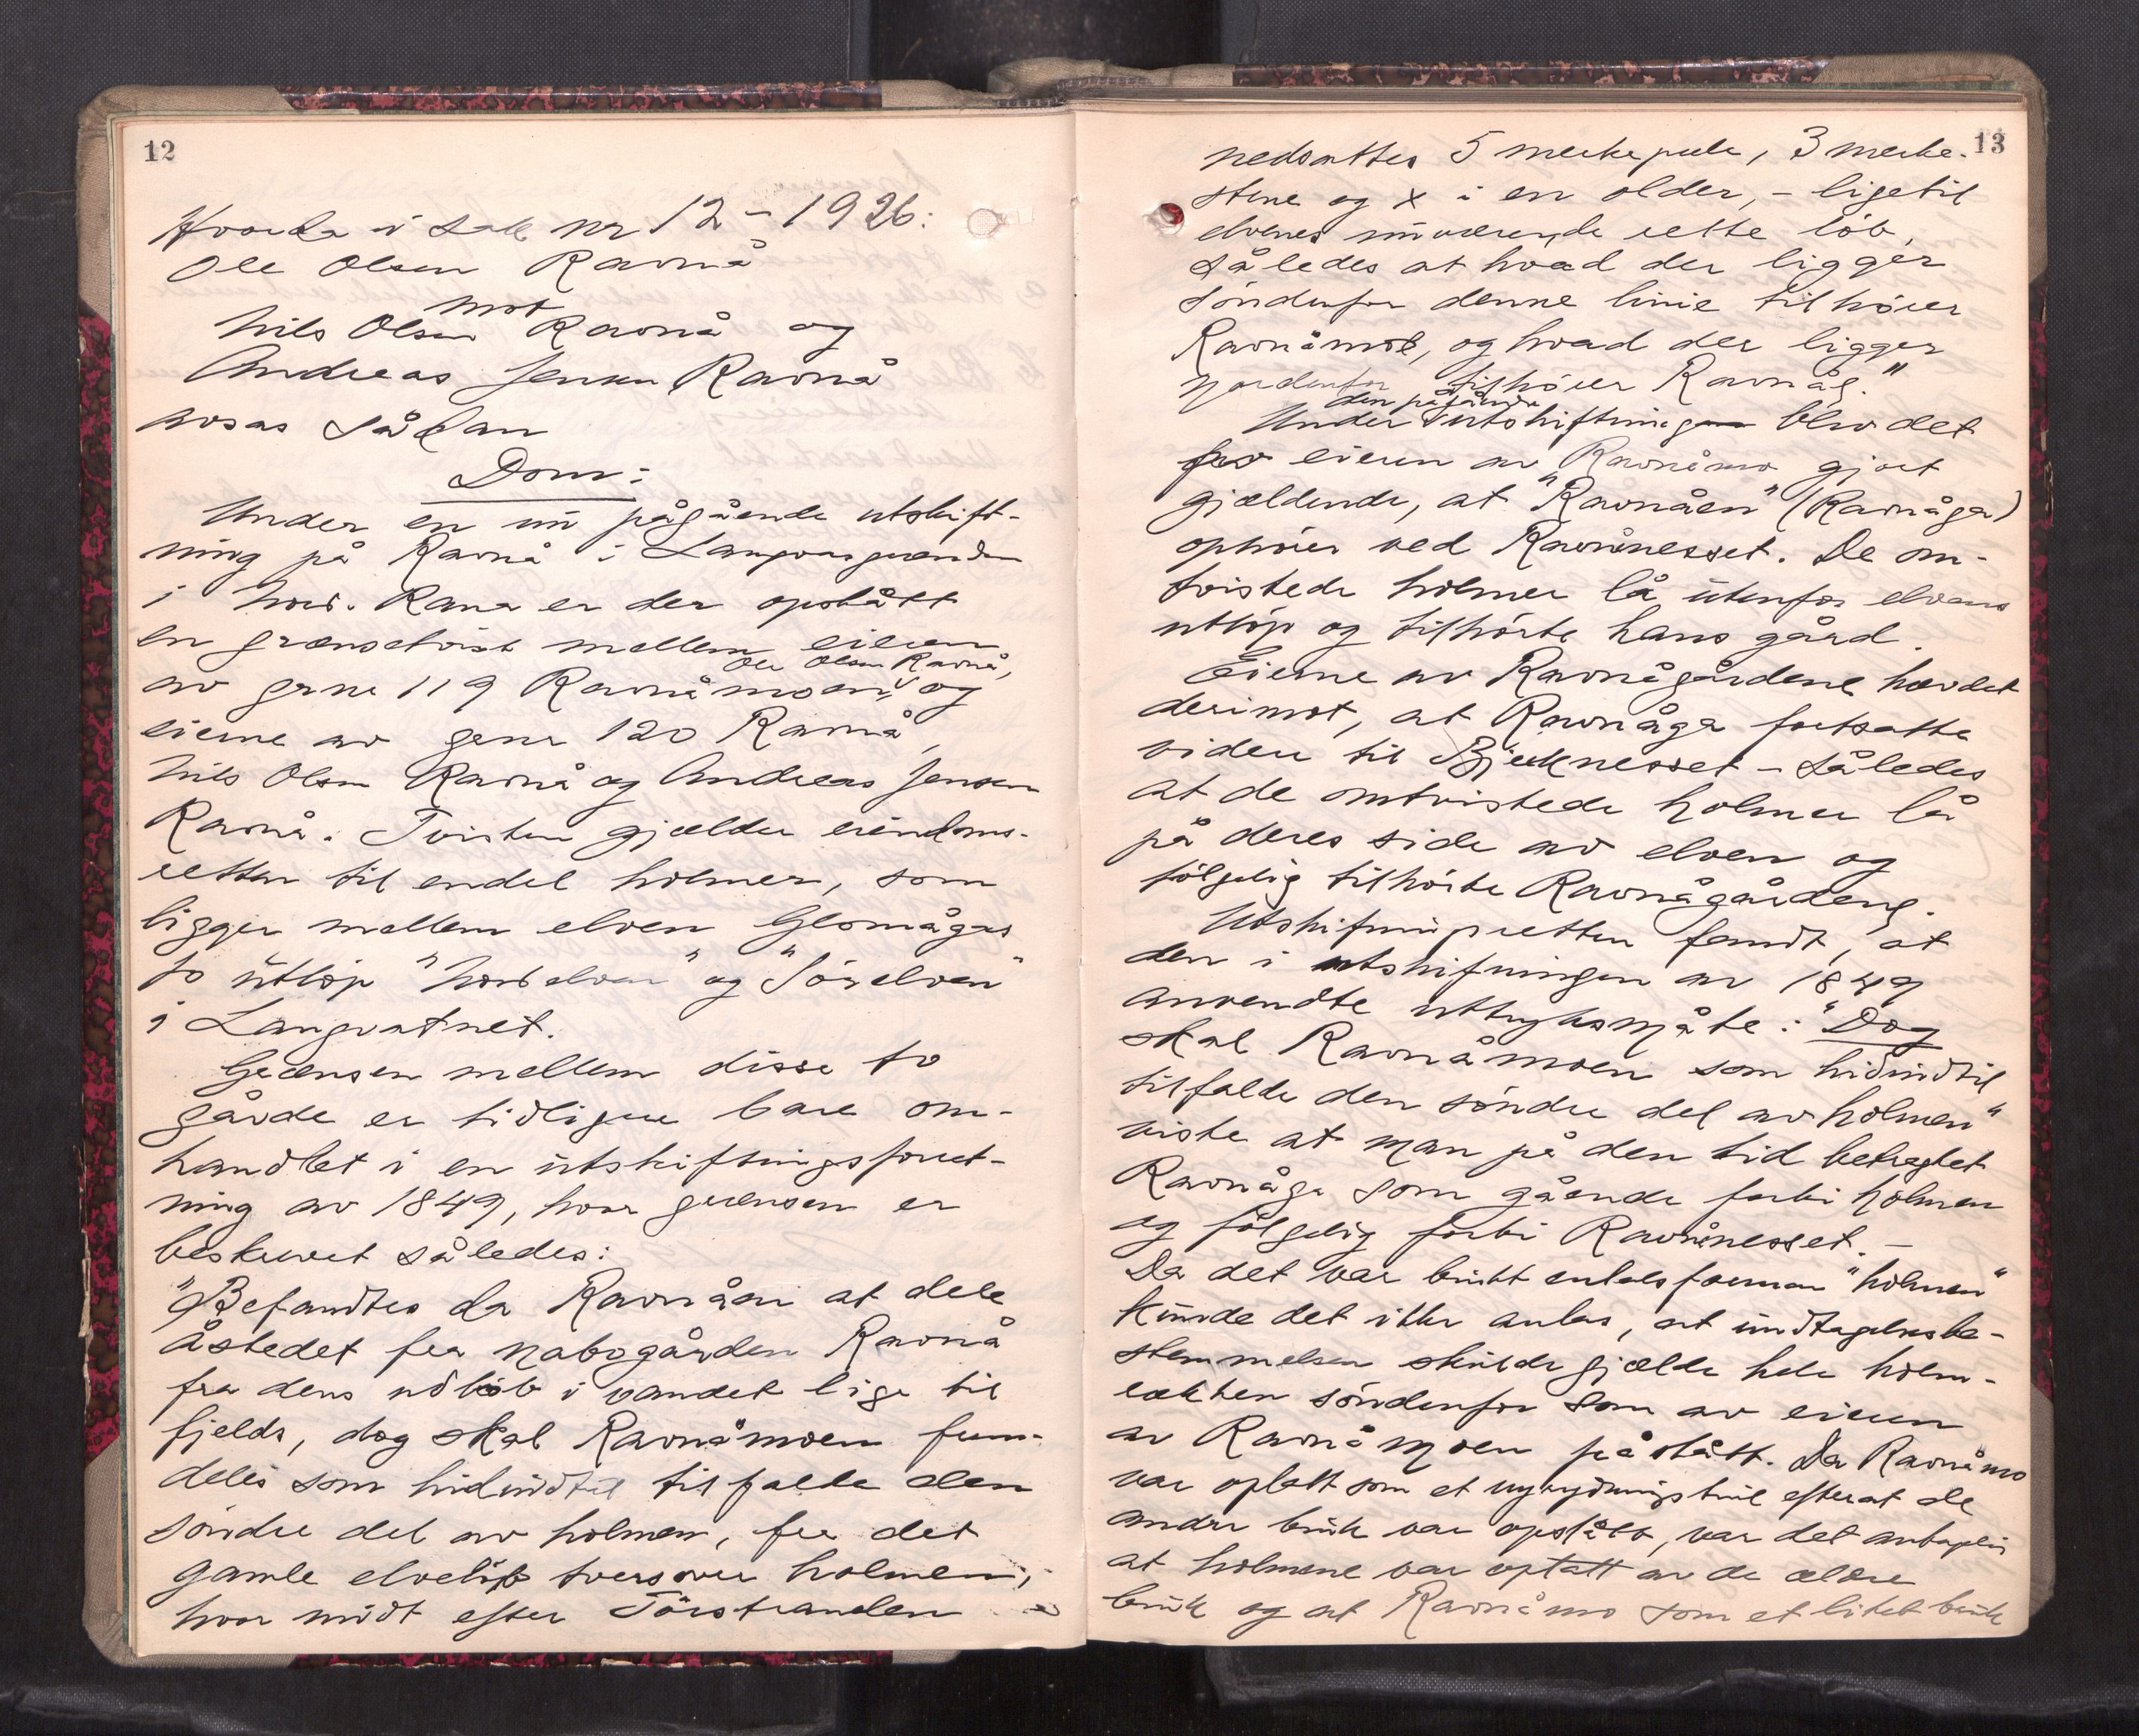 12
Hvorda i sak nr 12 - 1926:
Ole Olsen Ravnå
mot
Nils Olsen Ravnå og
Andreas Jensen Ravnå
avsas sådan
Dom:
Under en nu pågående utskift-
ning på Ravnå i Langvassgrenden
i Nord-Rana er der opstått
en grænsetvist mellem eieren
av grnr 119 Ravnåmoen, Ole Olsen Ravnå, og
eierne av grnr 120 Ravnå,
Nils Olsen Ravnå og Andreas Jensen
Ravnå. Tvisten gjælder eiendoms-
retten til endel holmer, som
ligger mellem elven Glomågas
to utløp "Nordelven" og "Sörelven"
i Langvatnet.
Grænsen mellem disse to
gårde er tidligere bare om-
handlet i en utskiftningsforret-
ning av 1849, hvor grensen er
beskrevet således:
"Befandtes da Ravnåen at dele
åstedet fra nabogården Ravnå
fra dens udlöb i vandet lige til
fjelds, dog skal Ravnåmoen frem-
deles som hidindtil tilfalde den
söndre del av holmen, fra det
gamle elvelöp tversover holmen,
hvor midt efter Törstranden
13
nedsattes 5 merkepæle, 3 merke-
stene og x i en older, - ligetil
elvenes nuværende rette löb,
således at hvad der ligger
söndenfor denne linie tilhörer
Ravnåmoe, og hvad der ligger
nordenfor tilhörer Ravnåe."
Under den pågående utskiftning blev det
fra eieren av Ravnåmo gjort
gjældende, at "Ravnåen" (Ravnåga)
ophörer ved Ravnånesset. De om-
tvistede holmer lå utenfor elvens
utlöp og tilhörte hans gård.
Eierne av Ravnågårdene hævdet
derimot, at Ravnåga fortsatte
videre til Bjerknesset - således
at de omtvistede holmer lå
på deres side av elven og
fölgelig tilhörte Ravnågårdene.
Utskiftningsretten fandt, at
den i utskiftningen av 1849
anvendte uttryksmåte: "Dog
skal Ravnåmoen som hidindtil
tilfalde den söndre del av holmen"
viste at man på den tid betragtet
Ravnåga som gående forbi holmen
og fölgelig forbi Ravnånesset. -
Da det var brukt entalsformen "holmen"
kunde det ikke antas, at undtagelsesbe-
stemmelsen skulde gjælde hele holm-
rækken söndenfor som av eieren
av Ravnåmoen påstått. Da Ravnåmo
var oplatt som et nyrydningsbruk efterat de
andre bruk var opstått, var det antagelig
at holmene var optatt av de ældre
bruk og at Ravnåmo som et litet bruk